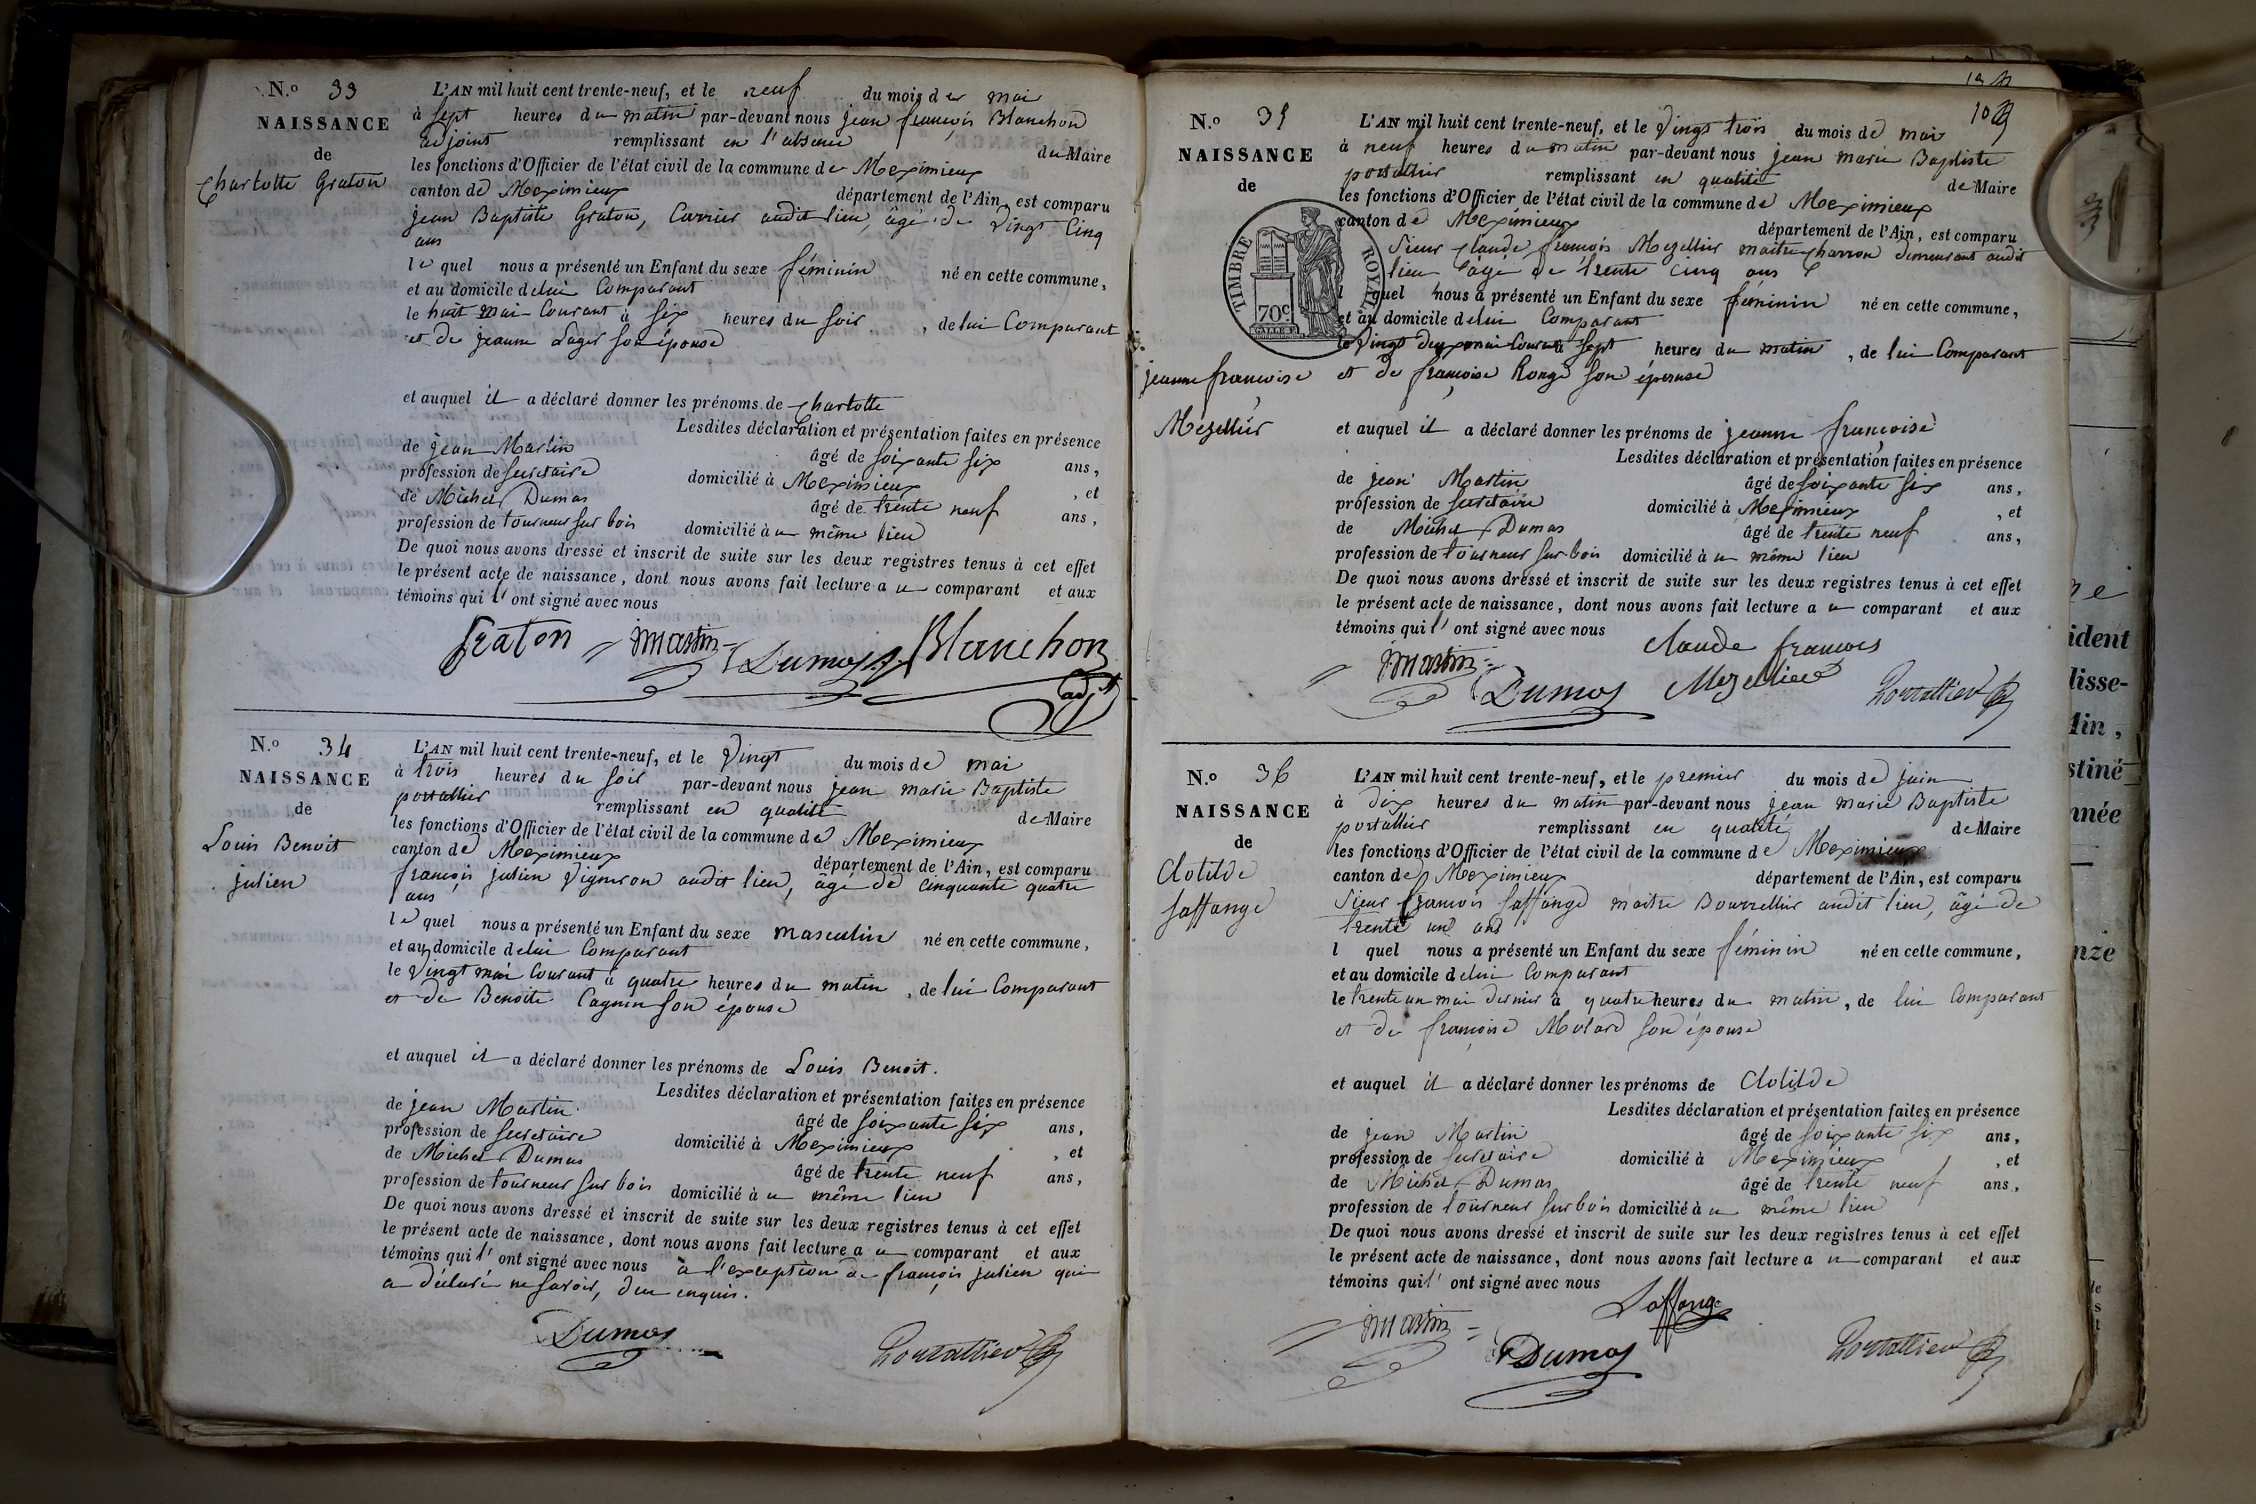 N.o 33
NAISSANCE
de
Charlotte Graton
L'AN mil huit cent trente-neuf, et le neuf du mois des mai
à sept heures du matin par-devant nous jean françois Blanchon
adjoint remplissant en l'absence du Maire
les fonctions d'Officier de l'état civil de la commune de Meximieux
canton de Meximieux département de l'Ain, est comparu
jean Baptiste Graton, Carrier audit lieu, âgé de vingt Cinq
ans
le quel nous a présenté un Enfant du sexe féminin né en cette commune,
et au domicile de lui Comparant
le huit mai Courant à six heures du soir, de lui Comparant
et de jeanne Lager son épouse
et auquel il a déclaré donner les prénoms de Charlotte
Lesdites déclaration et présentation faites en présence
de jean Martin âgé de soixante six ans,
profession de secretaire domicilié à Meximieux, et
de Michel Dumas âgé de trente neuf ans,
profession de tourneur sur bois domicilié à u même lieu
De quoi nous avons dressé et inscrit de suite sur les deux registres tenus à cet effet
le présent acte de naissance, dont nous avons fait lecture a u comparant et aux
témoins qui l' ont signé avec nous
Graton jmartin Dumas Blanchon
adjt
N.o 34
NAISSANCE
de
Louis Benoit
julien
L'AN mil huit cent trente-neuf, et le vingt du mois de mai
à trois heures du soir par-devant nous jean marie Baptiste
portallier remplissant en qualité de Maire
les fonctions d'Officier de l'état civil de la commune de Meximieux
canton de Meximieux département de l'Ain, est comparu
françois julien vigneron audit lieu, âgé de cinquante quatre
ans
le quel nous a présenté un Enfant du sexe masculin né en cette commune,
et au domicile de lui Comparant
le vingt mai Courant à quatre heures du matin, de lui Comparant
et de Benoite Cagnin son épouse
et auquel il a déclaré donner les prénoms de Louis Benoit.
Lesdites déclaration et présentation faites en présence
de jean Martin âgé de soixante six ans,
profession de secretaire domicilié à Meximieux, et
de Michel Dumas âgé de trente neuf ans,
profession de tourneur sur bois domicilié à u même lieu
De quoi nous avons dressé et inscrit de suite sur les deux registres tenus à cet effet
le présent acte de naissance, dont nous avons fait lecture a u comparant et aux
témoins qui l' ont signé avec nous à l'exception de françois julien qui
a déclaré ne savoir, d'eu enquis.
Dumas Portallier
103
N.o 35
NAISSANCE
de
TIMBRE ROYAL
70c
jeanne françoise
Mezellier
L'AN mil huit cent trente-neuf, et le vingt trois du mois de mai
à neuf heures du matin par-devant nous jean marie Baptiste
portallier remplissant en qualité de Maire
les fonctions d'Officier de l'état civil de la commune de Meximieux
canton de Meximieux département de l'Ain, est comparu
sieur Claude françois Mezellier maitre charron demeurant audit
lieu âgé de trente cinq ans
l quel nous a présenté un Enfant du sexe féminin né en cette commune,
et au domicile de lui Comparant
le vingt deux mai Courant à sept heures du matin, de lui Comparant
et de françoise Rongé son épouse
et auquel il a déclaré donner les prénoms de jeanne françoise
Lesdites déclaration et présentation faites en présence
de jean Martin âgé de soixante six ans,
profession de secretaire domicilié à Meximieux, et
de Michel Dumas âgé de trente neuf ans,
profession de tourneur sur bois domicilié à u même lieu
De quoi nous avons dressé et inscrit de suite sur les deux registres tenus à cet effet
le présent acte de naissance, dont nous avons fait lecture a u comparant et aux
témoins qui l' ont signé avec nous
claude francois
jmartin Dumas Mezellier Portallier
N.o 36
NAISSANCE
de
Clotilde
Saffange
L'AN mil huit cent trente-neuf, et le premier du mois de juin
à dix heures du matin par-devant nous jean marie Baptiste
portallier remplissant en qualité de Maire
les fonctions d'Officier de l'état civil de la commune de Meximieux
canton de Meximieux département de l'Ain, est comparu
sieur françois Saffange maitre Bourrellier audit lieu, âgé de
trente un ans
l quel nous a présenté un Enfant du sexe féminin né en cette commune,
et au domicile de lui Comparant
le trente un mai dernier à quatre heures du matin, de lui Comparant
et de françoise Molard son épouse
et auquel il a déclaré donner les prénoms de Clotilde
Lesdites déclaration et présentation faites en présence
de jean Martin âgé de soixante six ans,
profession de secretaire domicilié à Meximieux, et
de Michel Dumas âgé de trente neuf ans,
profession de tourneur sur bois domicilié à u même lieu
De quoi nous avons dressé et inscrit de suite sur les deux registres tenus à cet effet
le présent acte de naissance, dont nous avons fait lecture a u comparant et aux
témoins qui l' ont signé avec nous
Saffange
jmartin Dumas Portallier
ident
lisse-
Ain,
stiné
nnée
nze